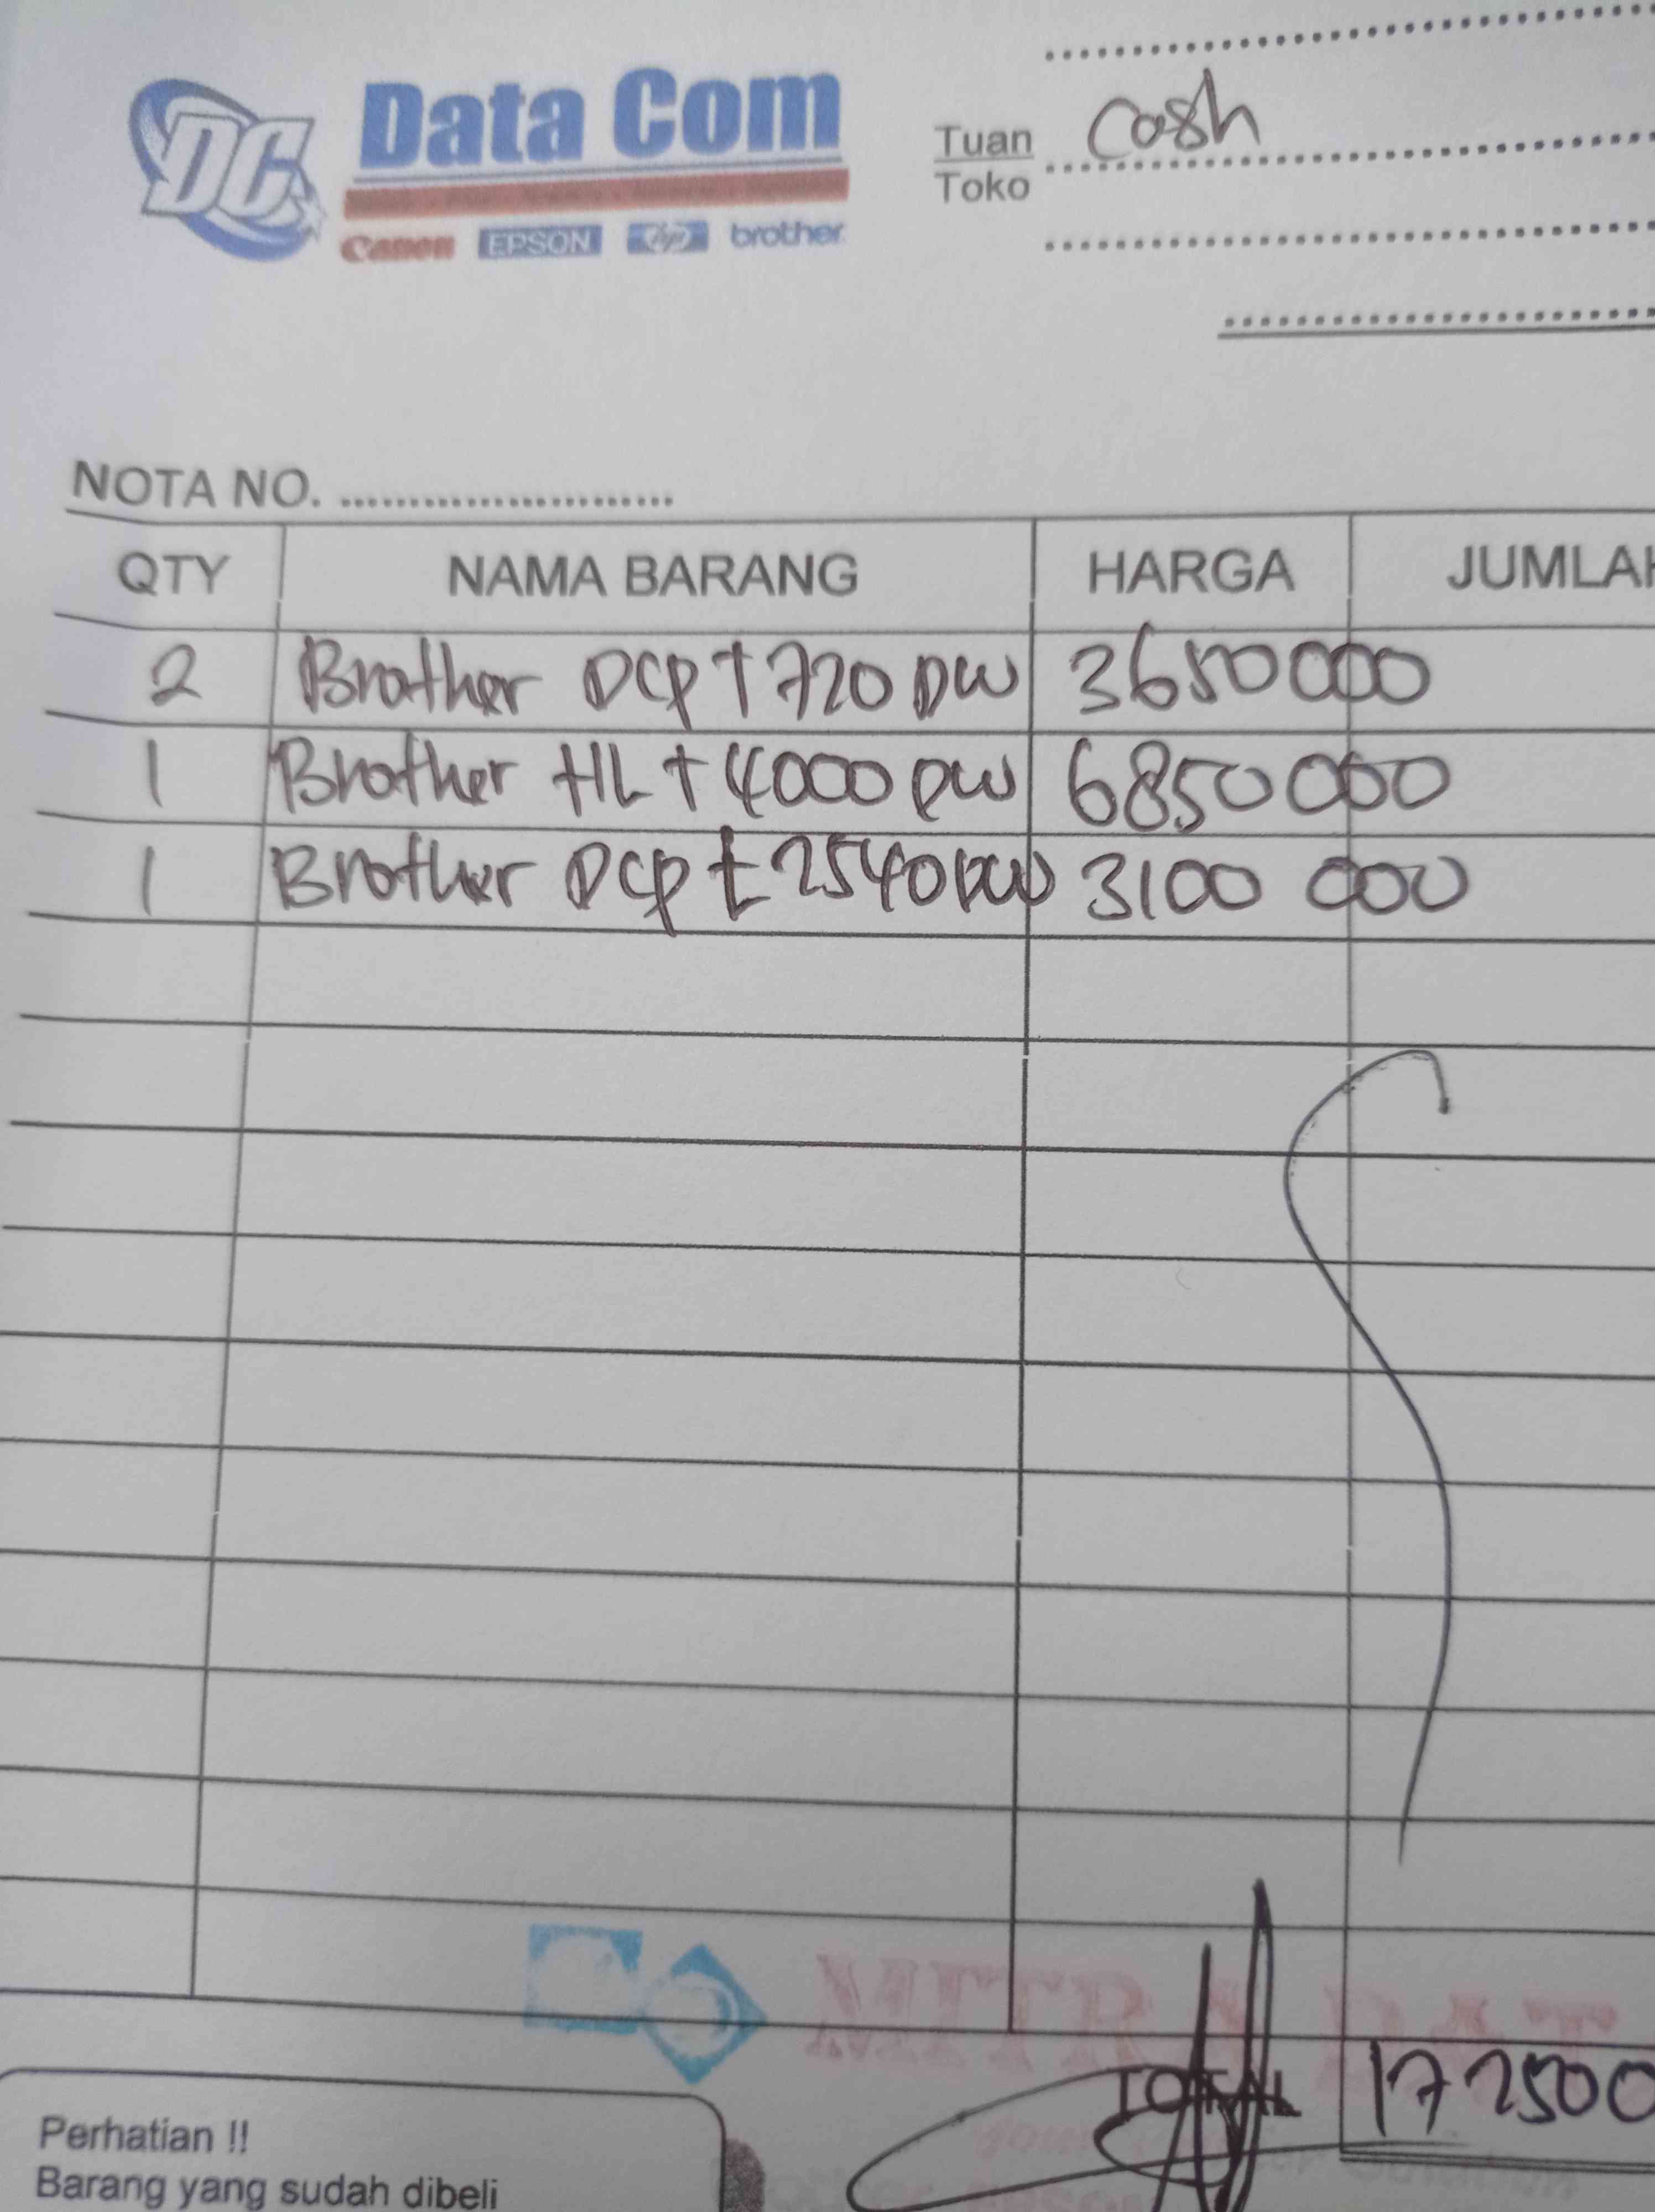 DC
Data Com
Canon EPSON hp brother
Tuan Cash
Toko
NOTA NO. ........................
QTY NAMA BARANG HARGA JUMLAH
2 Brother DCP T720 DW 3650000
1 Brother HL T4000 DW 6850000
1 Brother DCP L2540DW 3100 000
TOTAL 172500
Perhatian !!
Barang yang sudah dibeli